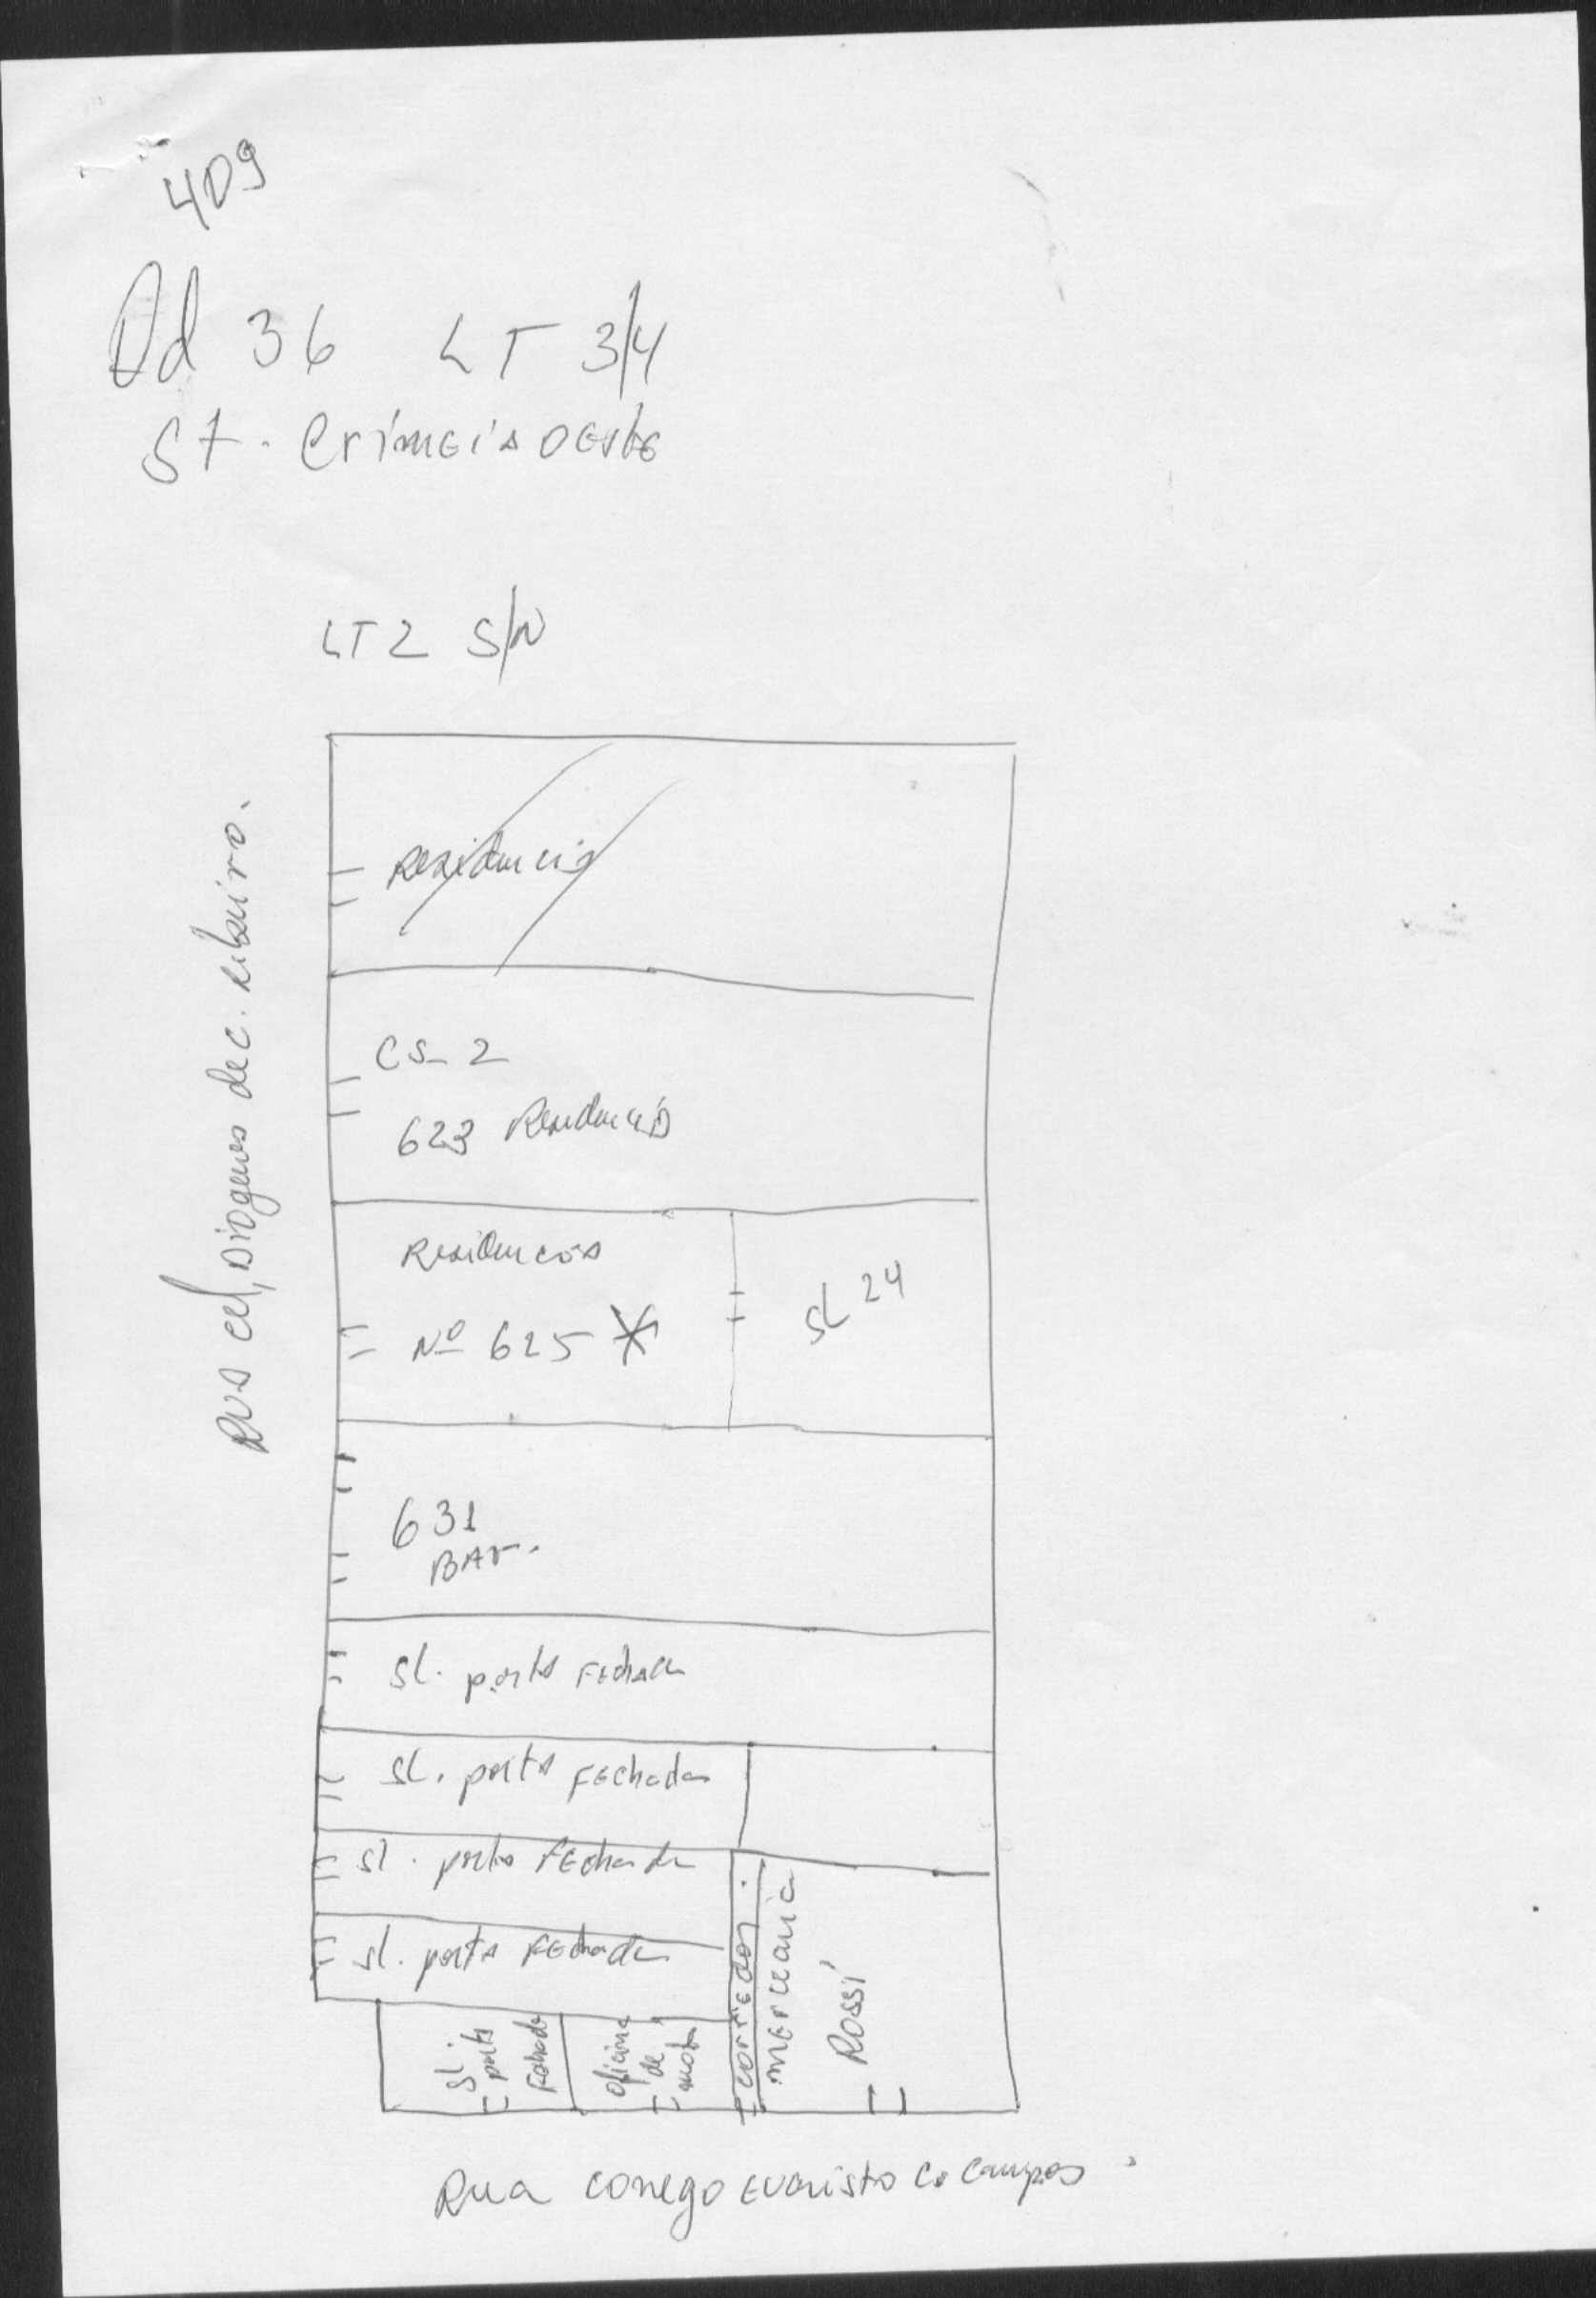 409
Qd 36 LT 3/4
St. Criméia Oeste
LT 2 S/N
Rua cel, Diogenes de c. ribeiro.
Residencia
CS- 2
623 Residencia
Residencia
Nº 625 *
SL 24
631
BAr.
SL. porta Fechada
SL. porta Fechada
sl. porta Fechada
sl. porta Fechada
sl.
porta
Fechada
oficina
de
moto
corredor.
mercearia
Rossi
Rua conego Evaristo C. campos.